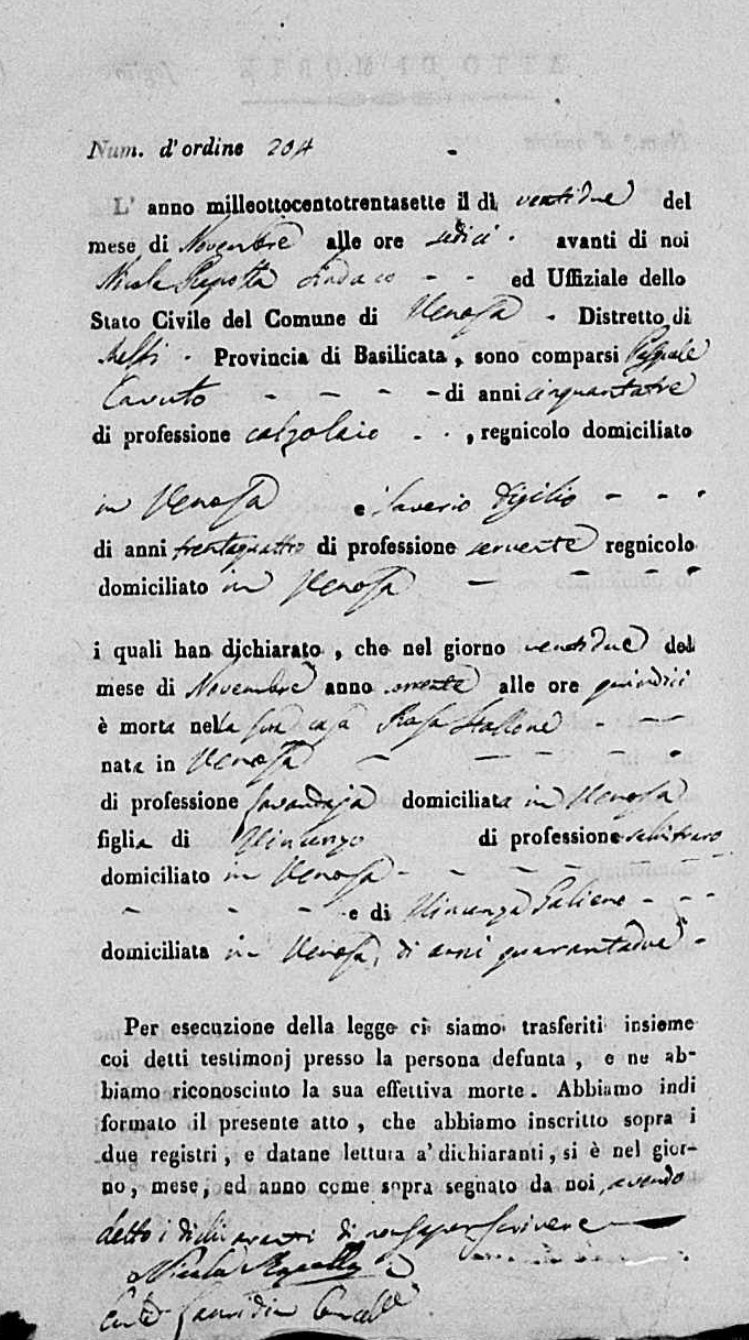 Num. d'ordine 204
L' anno milleottocentotrentasette il dì ventidue del
mese di Novembre alle ore sedici. avanti di noi
Nicola Rapolla Sindaco - - ed Uffiziale dello
Stato Civile del Comune di Venosa - Distretto di
Melfi - Provincia di Basilicata, sono comparsi Pasquale
Caruto - - - - di anni cinquantatre
di professione calzolaio - ., regnicolo domiciliato
in Venosa e Saverio Digilio - - .
di anni trentaquattro di professione servente regnicolo
domiciliato in Venosa - - - -
i quali han dichiarato, che nel giorno ventidue del
mese di Novembre anno corrente alle ore quindici
è morta nella sua casa Rosa Stallone - - -
nata in Venosa - - - - -
di professione lavandaja domiciliata in Venosa
figlia di Vincenzo di professione
domiciliato in Venosa - - - - - -
- - - e di Vincenza - - -
domiciliata in Venosa, di anni quarantadue -
Per esecuzione della legge ci siamo trasferiti insieme
coi detti testimonj presso la persona defunta, e ne ab-
biamo riconosciuto la sua effettiva morte. Abbiamo indi
formato il presente atto, che abbiamo inscritto sopra i
due registri, e datane lettura a' dichiaranti, si è nel gior-
no, mese, ed anno come sopra segnato da noi, avendo
detto i dichiaranti di non saper scrivere
Nicola Rapolla